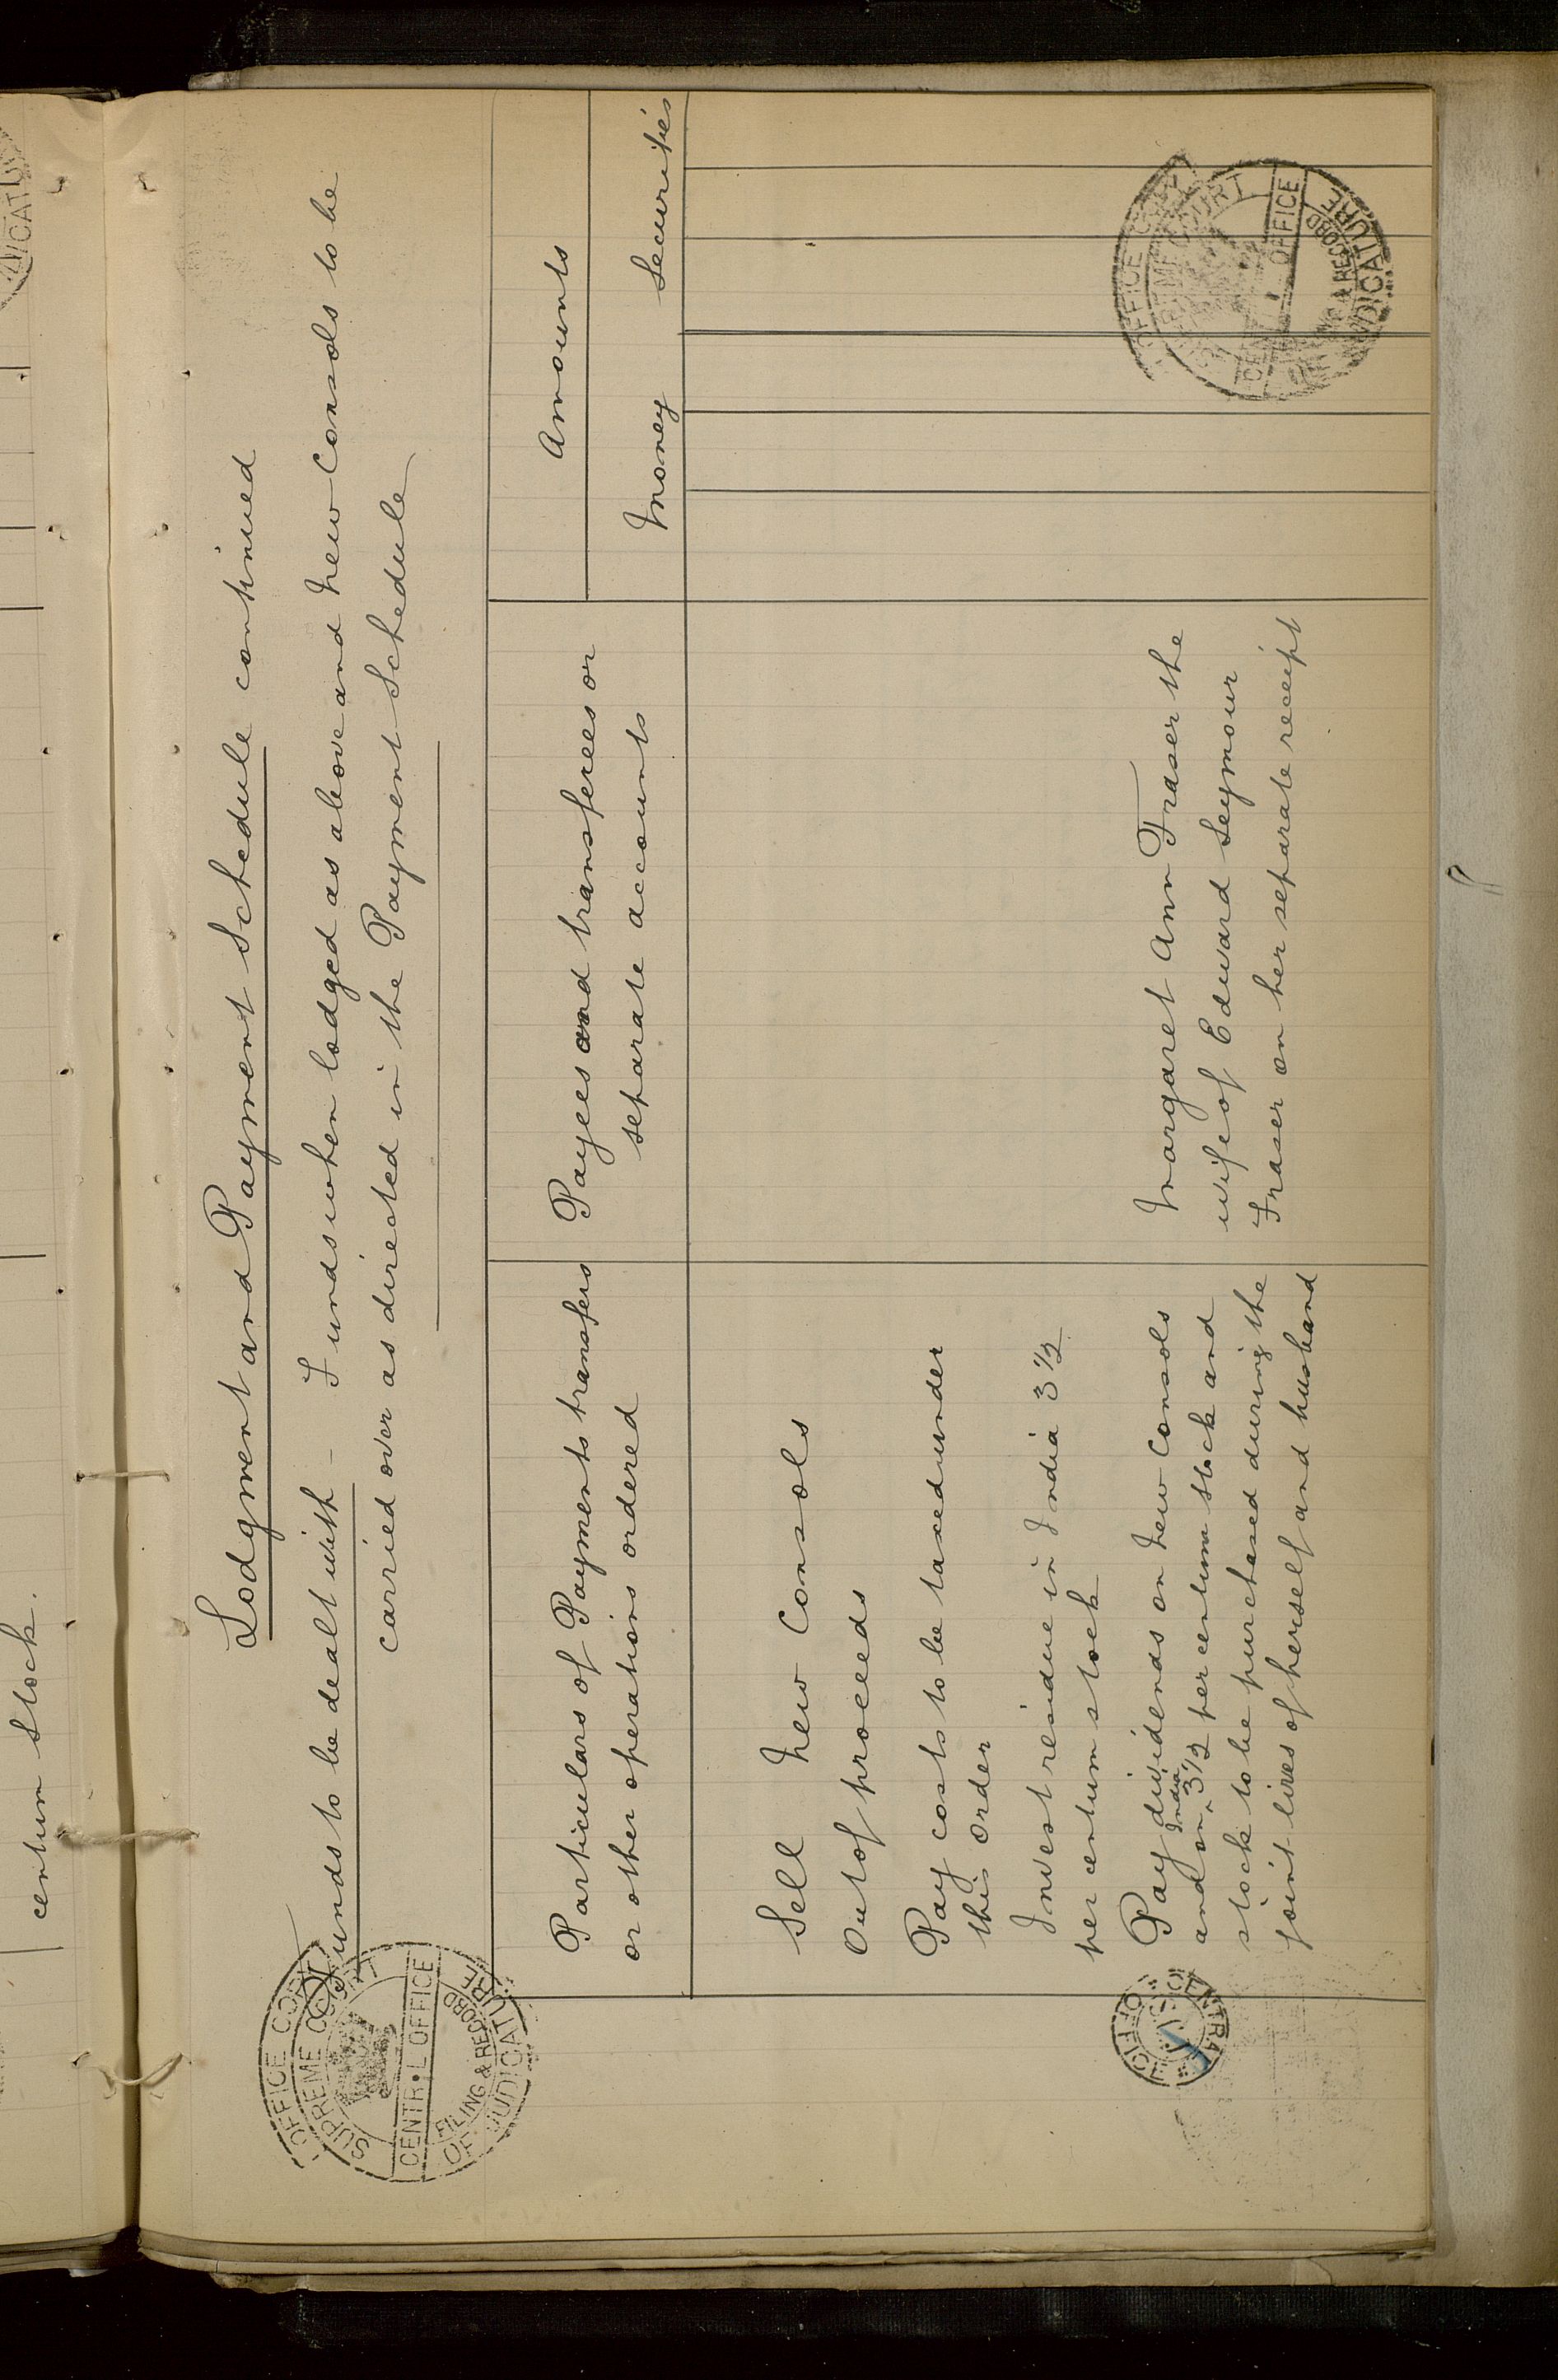 centum Stock.
Lodgment and Payment Schedule continued
Funds to be dealt with - Funds when lodged as above and New Consols to be
carried over as directed in the Payment Schedule
Particulars of Payments transfers
or other operations ordered
Payees and transferees or
separate accounts
Amounts
Money
Securities
Sell New Consols
Out of proceeds
Pay costs to be taxed under
this order
Invest residue in India 3 1/2
per centum stock
Pay dividends on New Consols
and on ^ India 3 1/2 per centum stock and
stock to be purchased during the
joint lives of herself and husband
Margaret Ann Fraser the
wife of Edward Seymour
Fraser on her separate receipt
OFFICE COPY
SUPREME COURT
CENTRAL OFFICE
FILING & RECORD
OF JUDICATURE
OFFICE COPY
SUPREME COURT
OFFICE
& RECORD
JUDICATURE
CENTRAL OFFICE